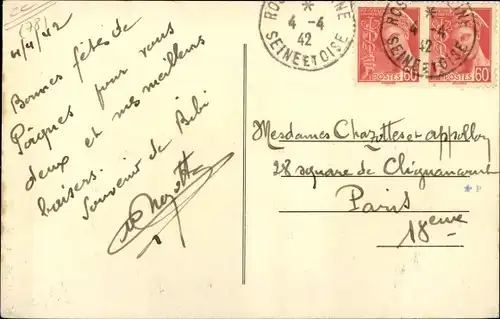 (78)
4/4/42
Bonnes fêtes de
Pâques pour vous
deux et mes meilleurs
baisers.
Souvenir de Bibi
4-4
42
SEINE ET OISE
4-4
42
SEINE ET OISE
POSTES 60
POSTES 60
Mesdames Chazottes et Appollon
28 square de Clignancourt
Paris
18eme